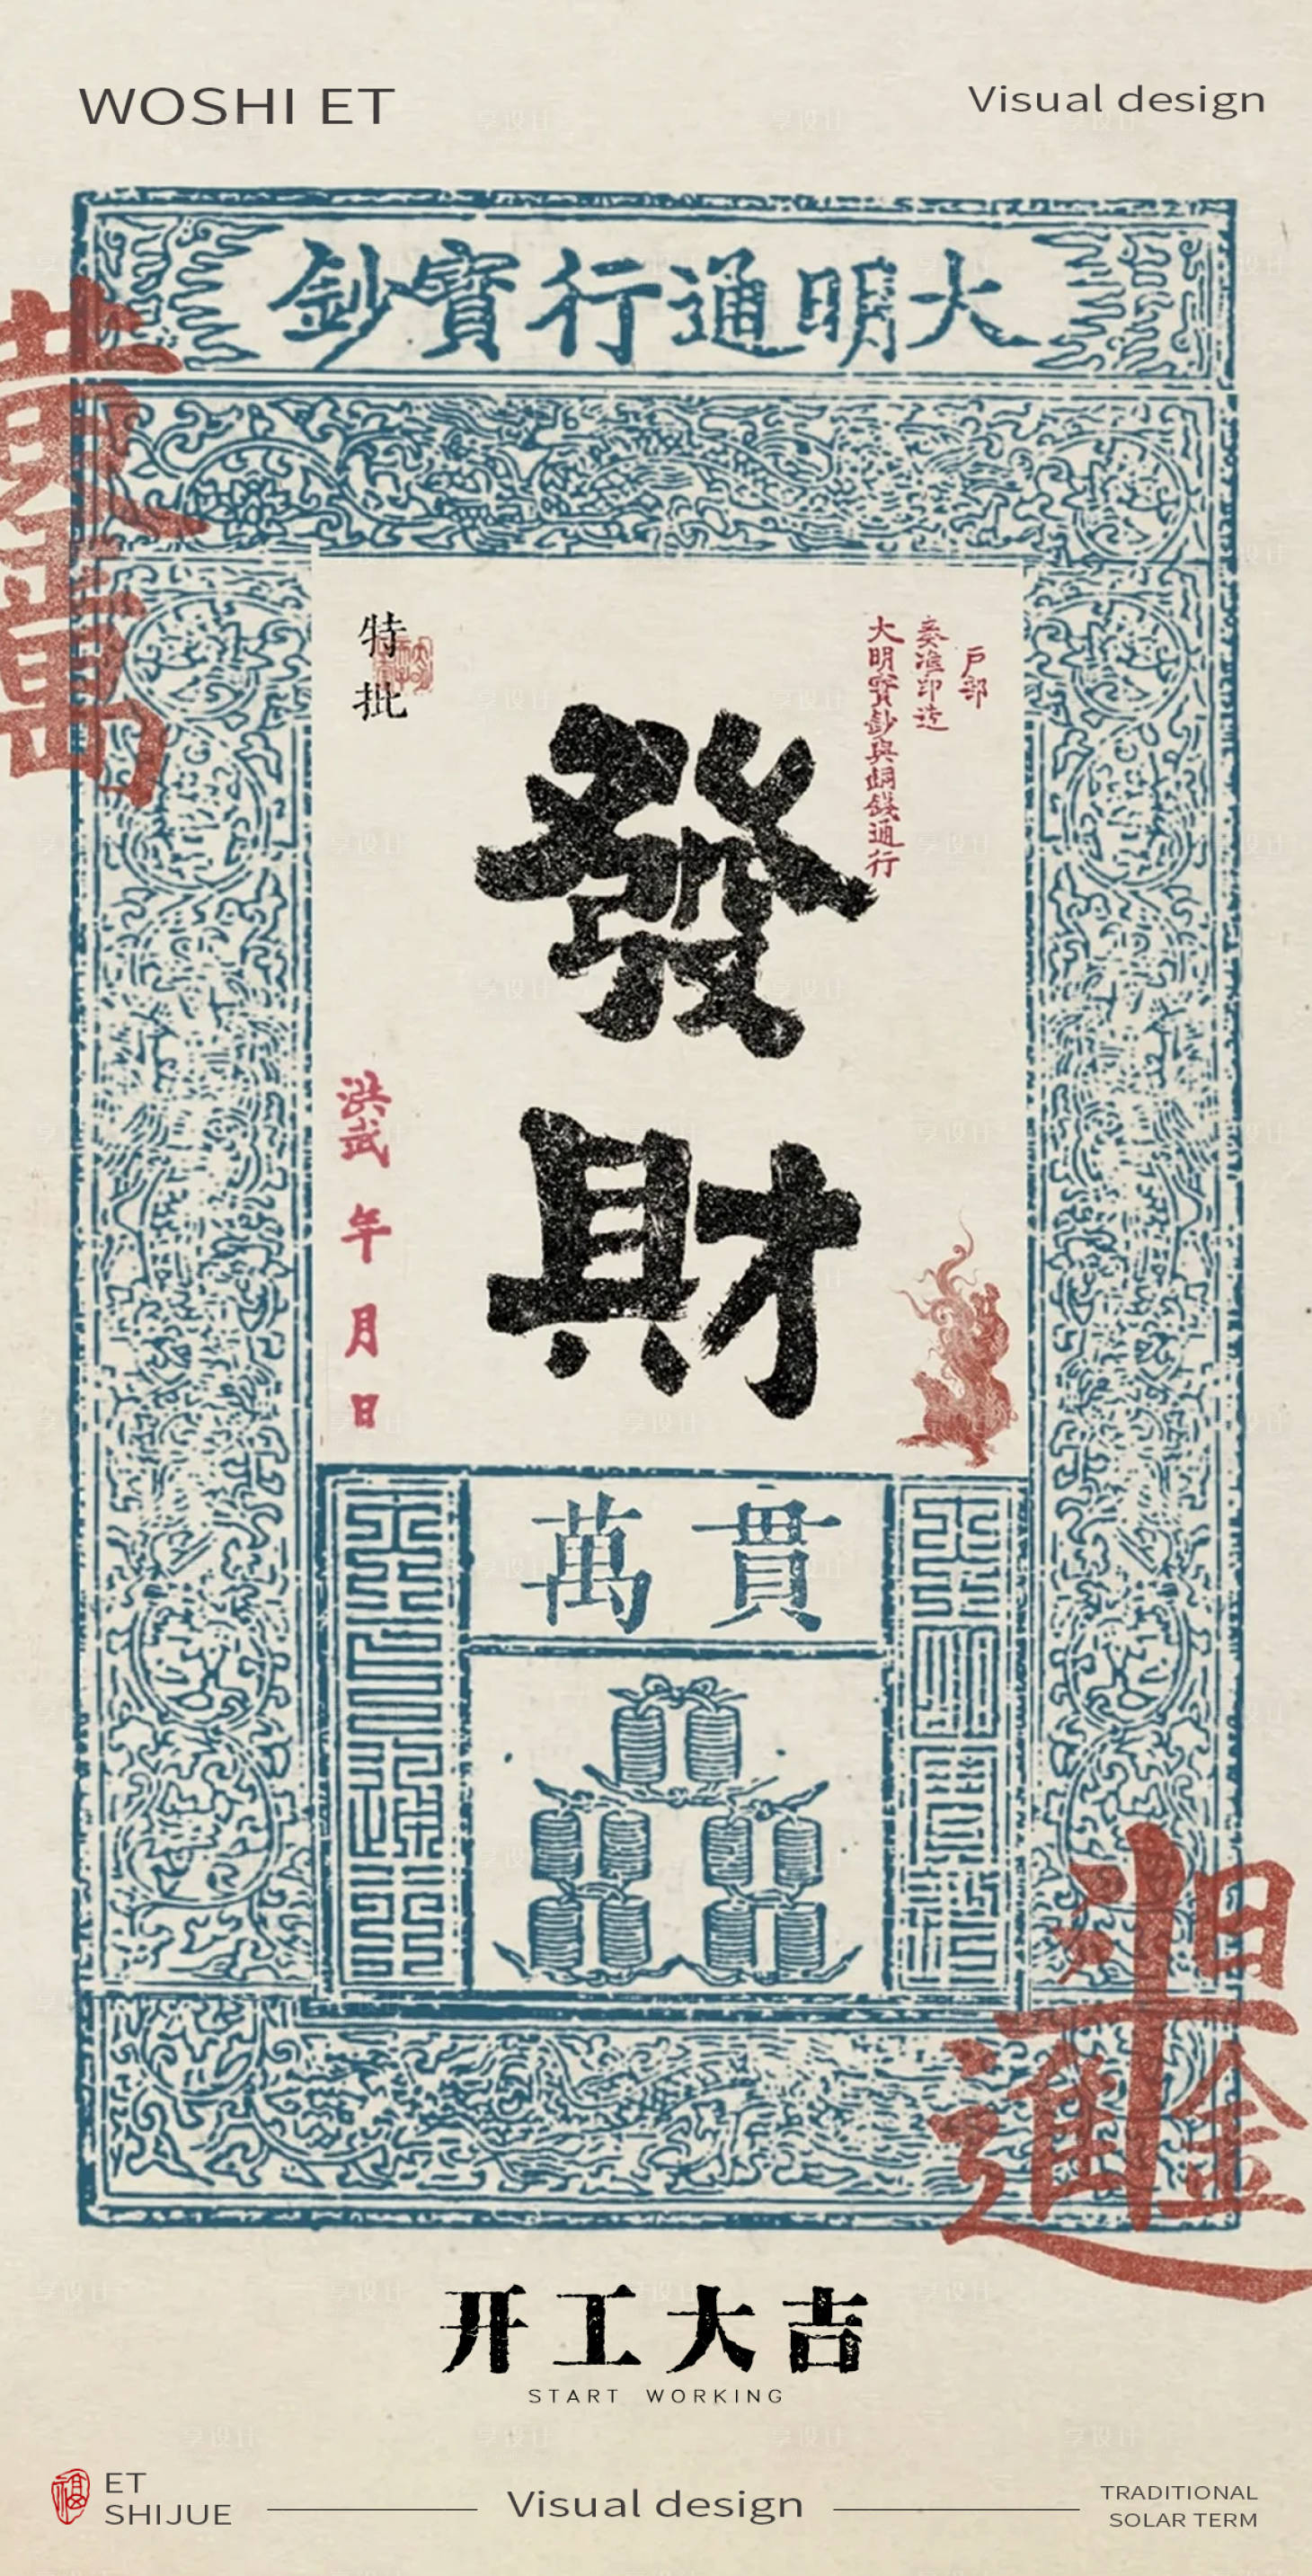 WOSHI ET
Visual design
大明通行寶鈔
戶部
奏準印造
大明寶鈔與銅錢通行
特批
發財
洪武
年
月
日
貫萬
黃金萬
日進斗金
开工大吉
START WORKING
福
ET
SHIJUE
Visual design
TRADITIONAL
SOLAR TERM
享设计